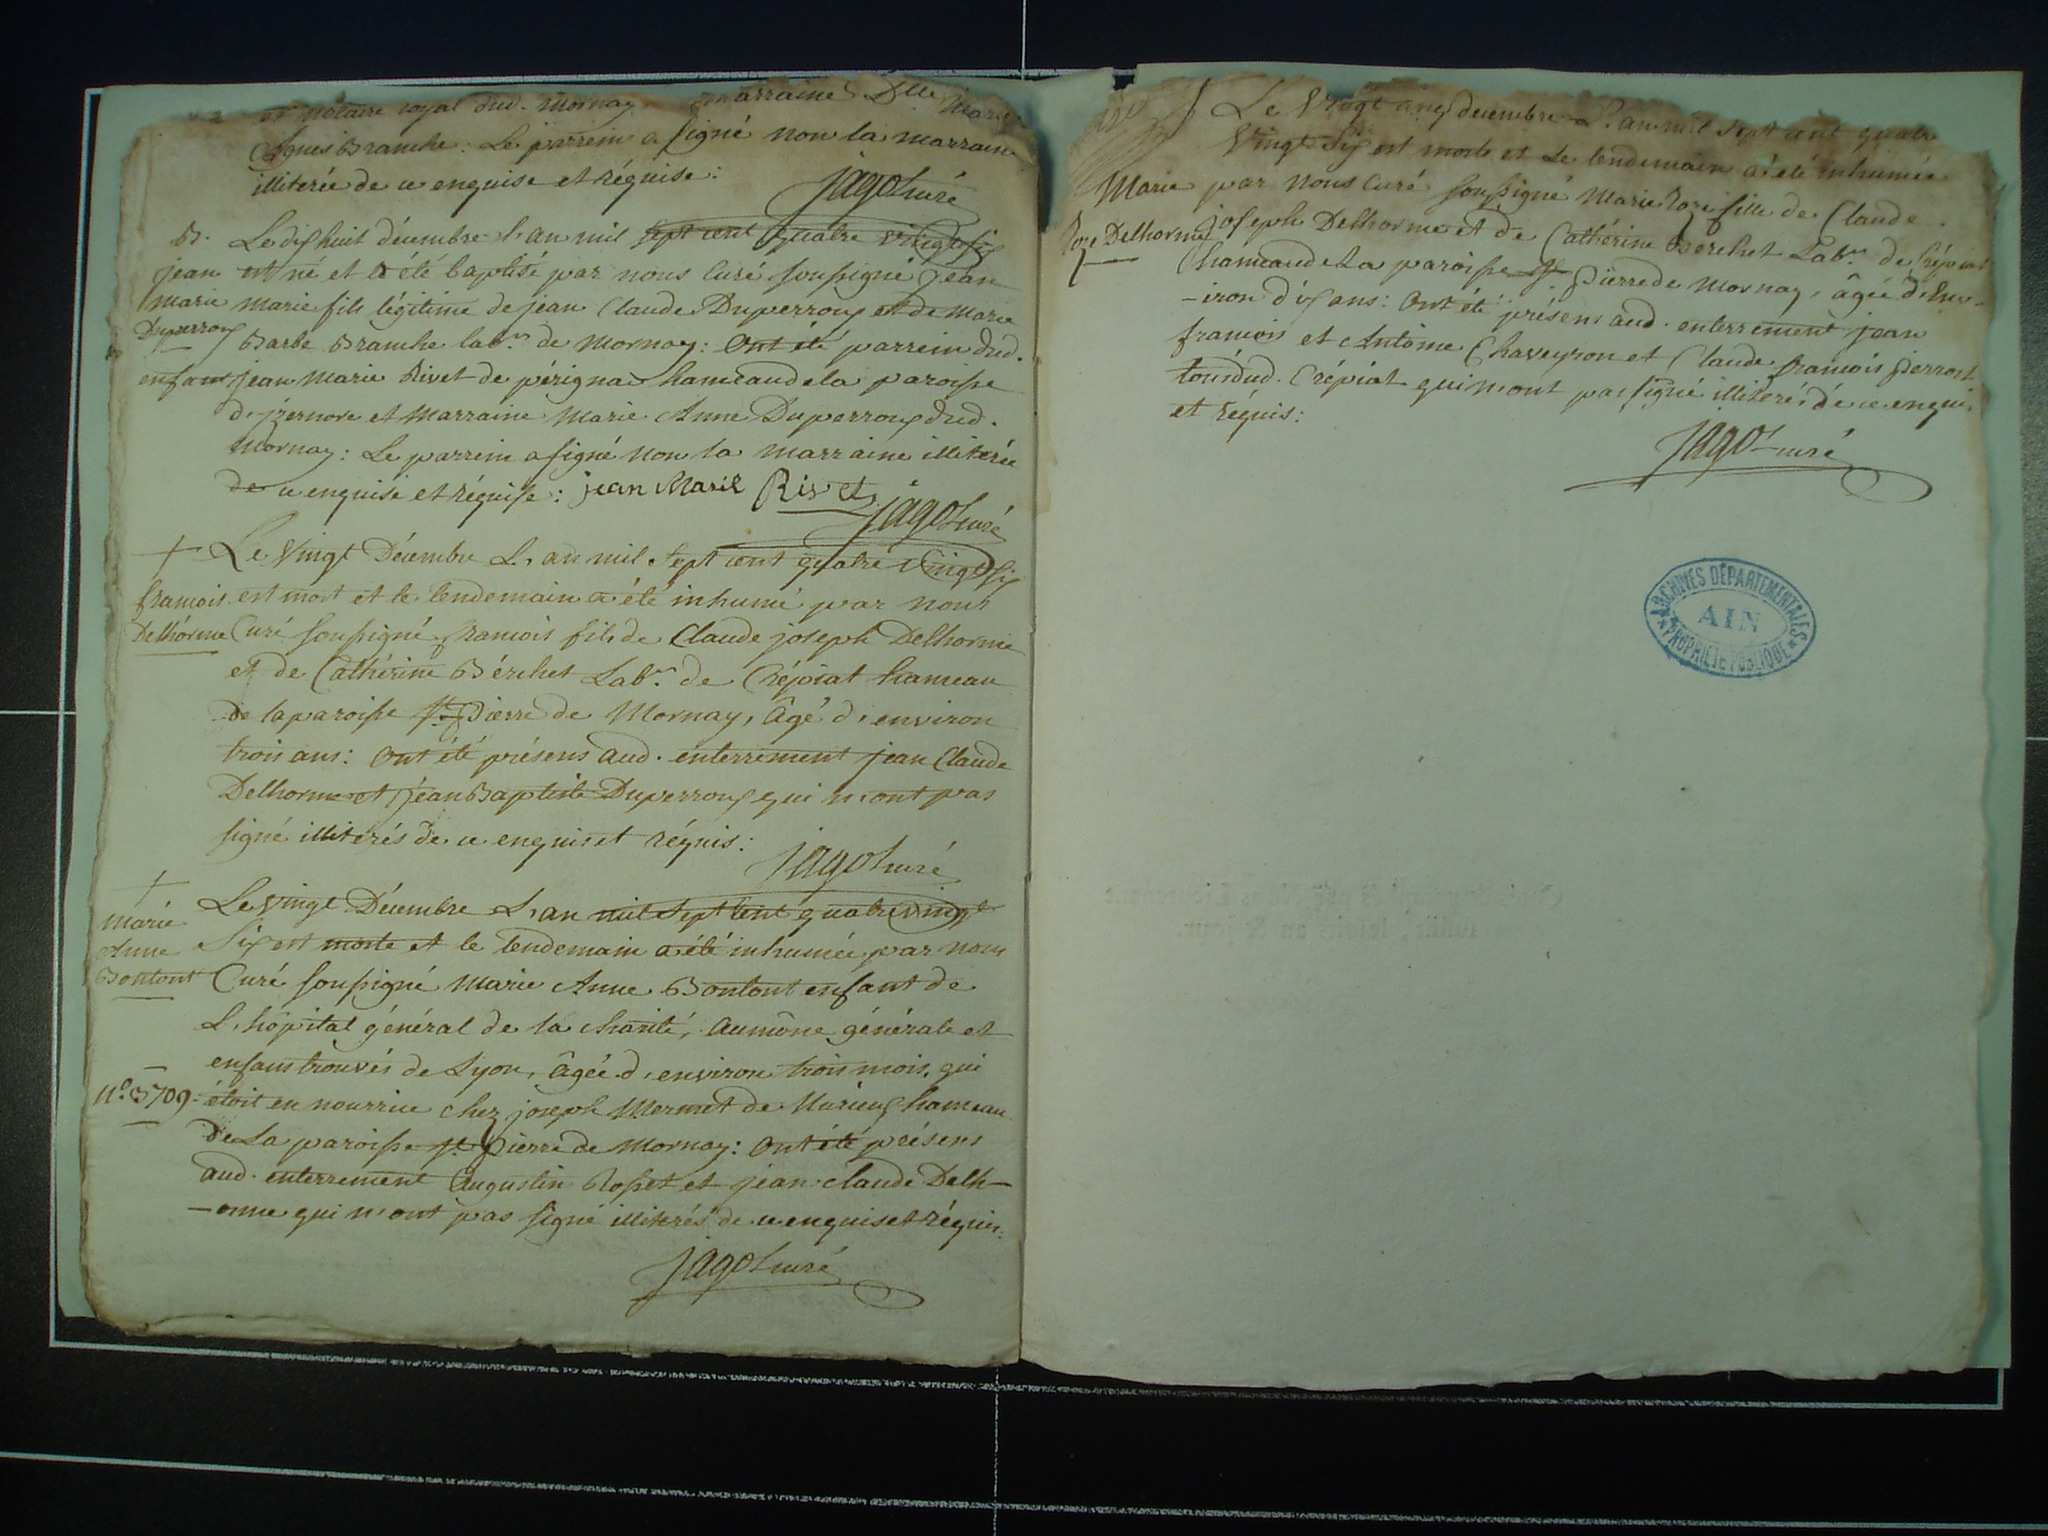 et notaire royal dud. Mornay marraine Dlle Marie
Agnes Branche: Le parrein a signé non la marraine
illiterée de ce enquise et réquise:
Jagot curé
B. Le dixhuit décembre l'an mil sept cent quatre vingt six
jean est né et a été baptisé par nous Curé soussigné jean
Marie Marie fils légitime de jean Claude Duperroux et de Marie
Duperroux Barbe Branche labr. de Mornay: Ont été parrein dud.
enfant jean Marie Rivet de pérignat hameau de la paroisse
d'jzernore et Marraine Marie Anne Duperroux dud.
Mornay: Le parrein a signé non la marraine illiterée
de ce enquise et réquise: jean Marie Rivet
Jagot curé
+ Le Vingt Décembre L'an mil sept cent quatre vingt six
francois est mort et le lendemain a été inhumé par nous
Delhorme Curé soussigné francois fils de Claude joseph Delhorme
et de Cathérine Bérchet Labr. de Crépiat hameau
De la paroisse St. Pierre de Mornay, âgé d'environ
trois ans: Ont été présens aud. enterrement jean Claude
Delhorme et jean Baptiste Duperroux qui n'ont pas
signé illiterés de ce enquis et réquis:
Jagot curé
+ Le Vingt Décembre L'an mil sept cent quatre vingt
Marie
Anne Six est morte et le lendemain a été inhumée par nous
Bontont Curé soussigné Marie Anne Bontont enfant de
L'hôpital général de la charité, Aumône générale et
enfans trouvés de Lyon, âgée d'environ trois mois, qui
N.o 3709. étoit en nourrice chez joseph Mermet de hameau
De La paroisse St. Pierre de Mornay: Ont été présens
aud. enterrement Augustin Rosset et jean claude Delh-
-orme qui n'ont pas signé illiterés de ce enquis et réquis:
Jagot curé
Le Vingt cinq decembre L'an mil sept cent quatre
Vingt Six est morte et Le lendemain a été inhumée
Marie par nous Curé soussigné Marie Roze fille de Claude
Roze Delhorme joseph Delhorme et de Cathérine Berchet Labr. de Crépiat
hameau de La paroisse St. Pierre de Mornay, âgée d'env-
-iron dix ans: Ont été présens aud. enterrement jean
francois et Antoine Chaveyron et Claude francois pierrost
tous dud. Crépiat qui n'ont pas signé illiterés de ce enquis
et réquis:
Jagot curé
ARCHIVES DÉPARTEMENTALES
AIN
* PROPRIÉTÉ PUBLIQUE *